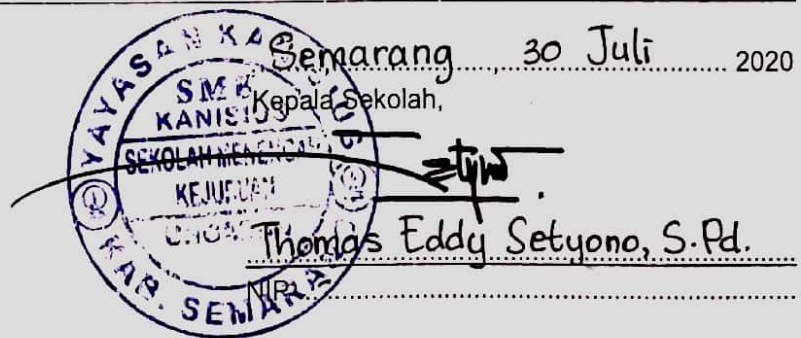 Semarang, 30 Juli 2020
Kepala Sekolah,
Thomas Eddy Setyono, S.Pd.
NIP.
YAYASAN KANISIUS
SMK
KANISIUS
SEKOLAH MENENGAH
KEJURUAN
KAB. SEMARANG